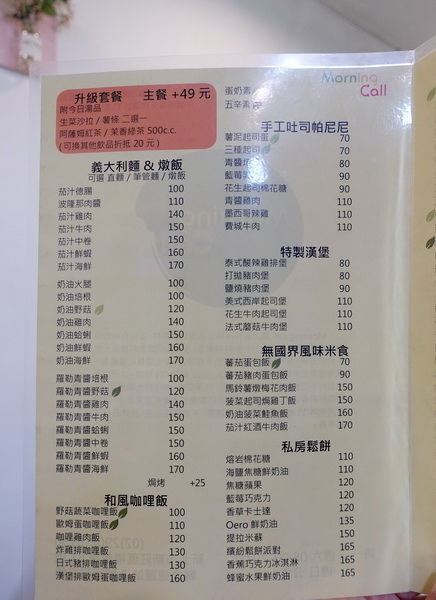 Morning
Call
升級套餐 主餐 +49 元
附今日湯品
生菜沙拉 / 薯條 二選一
阿薩姆紅茶 / 茉香綠茶 500c.c.
(可換其他飲品折抵 20 元)
義大利麵 & 燉飯
可選 直麵 / 筆管麵 / 燉飯
茄汁德腸 100
波隆那肉醬 110
茄汁雞肉 140
茄汁牛肉 150
茄汁中卷 150
茄汁鮮蝦 160
茄汁海鮮 170
奶油火腿 100
奶油培根 100
奶油野菇 120
奶油雞肉 140
奶油蛤蜊 150
奶油鮮蝦 160
奶油海鮮 170
羅勒青醬培根 100
羅勒青醬野菇 120
羅勒青醬雞肉 140
羅勒青醬牛肉 150
羅勒青醬蛤蜊 150
羅勒青醬中卷 150
羅勒青醬鮮蝦 160
羅勒青醬海鮮 170
焗烤 +25
和風咖哩飯
野菇蔬菜咖哩飯 100
歐姆蛋咖哩飯 110
咖哩雞肉飯 120
炸雞排咖哩飯 130
日式豬排咖哩飯 130
漢堡排歐姆蛋咖哩飯 160
蛋奶素
五辛素
手工吐司帕尼尼
薯泥起司蛋 70
三種起司 70
青醬 80
藍莓 90
花生起司棉花糖 90
青醬雞肉 110
墨西哥辣雞 110
費城牛肉 110
特製漢堡
泰式酸辣雞排堡 80
打拋豬肉堡 80
鹽燒豬肉堡 90
美式西岸起司堡 110
花生牛肉起司堡 110
法式蘑菇牛肉堡 110
無國界風味米食
蕃茄蛋包飯 70
蕃茄豬肉蛋包飯 90
馬鈴薯燉梅花肉飯 150
菠菜起司焗雞丁飯 150
奶油菠菜鮭魚飯 160
茄汁紅酒牛肉飯 170
私房鬆餅
熔岩棉花糖 110
海鹽焦糖鮮奶油 110
焦糖蘋果 120
藍莓巧克力 120
香草卡士達 120
Oero 鮮奶油 135
提拉米蘇 150
繽紛鬆餅派對 165
香蕉巧克力冰淇淋 165
蜂蜜水果鮮奶油 165